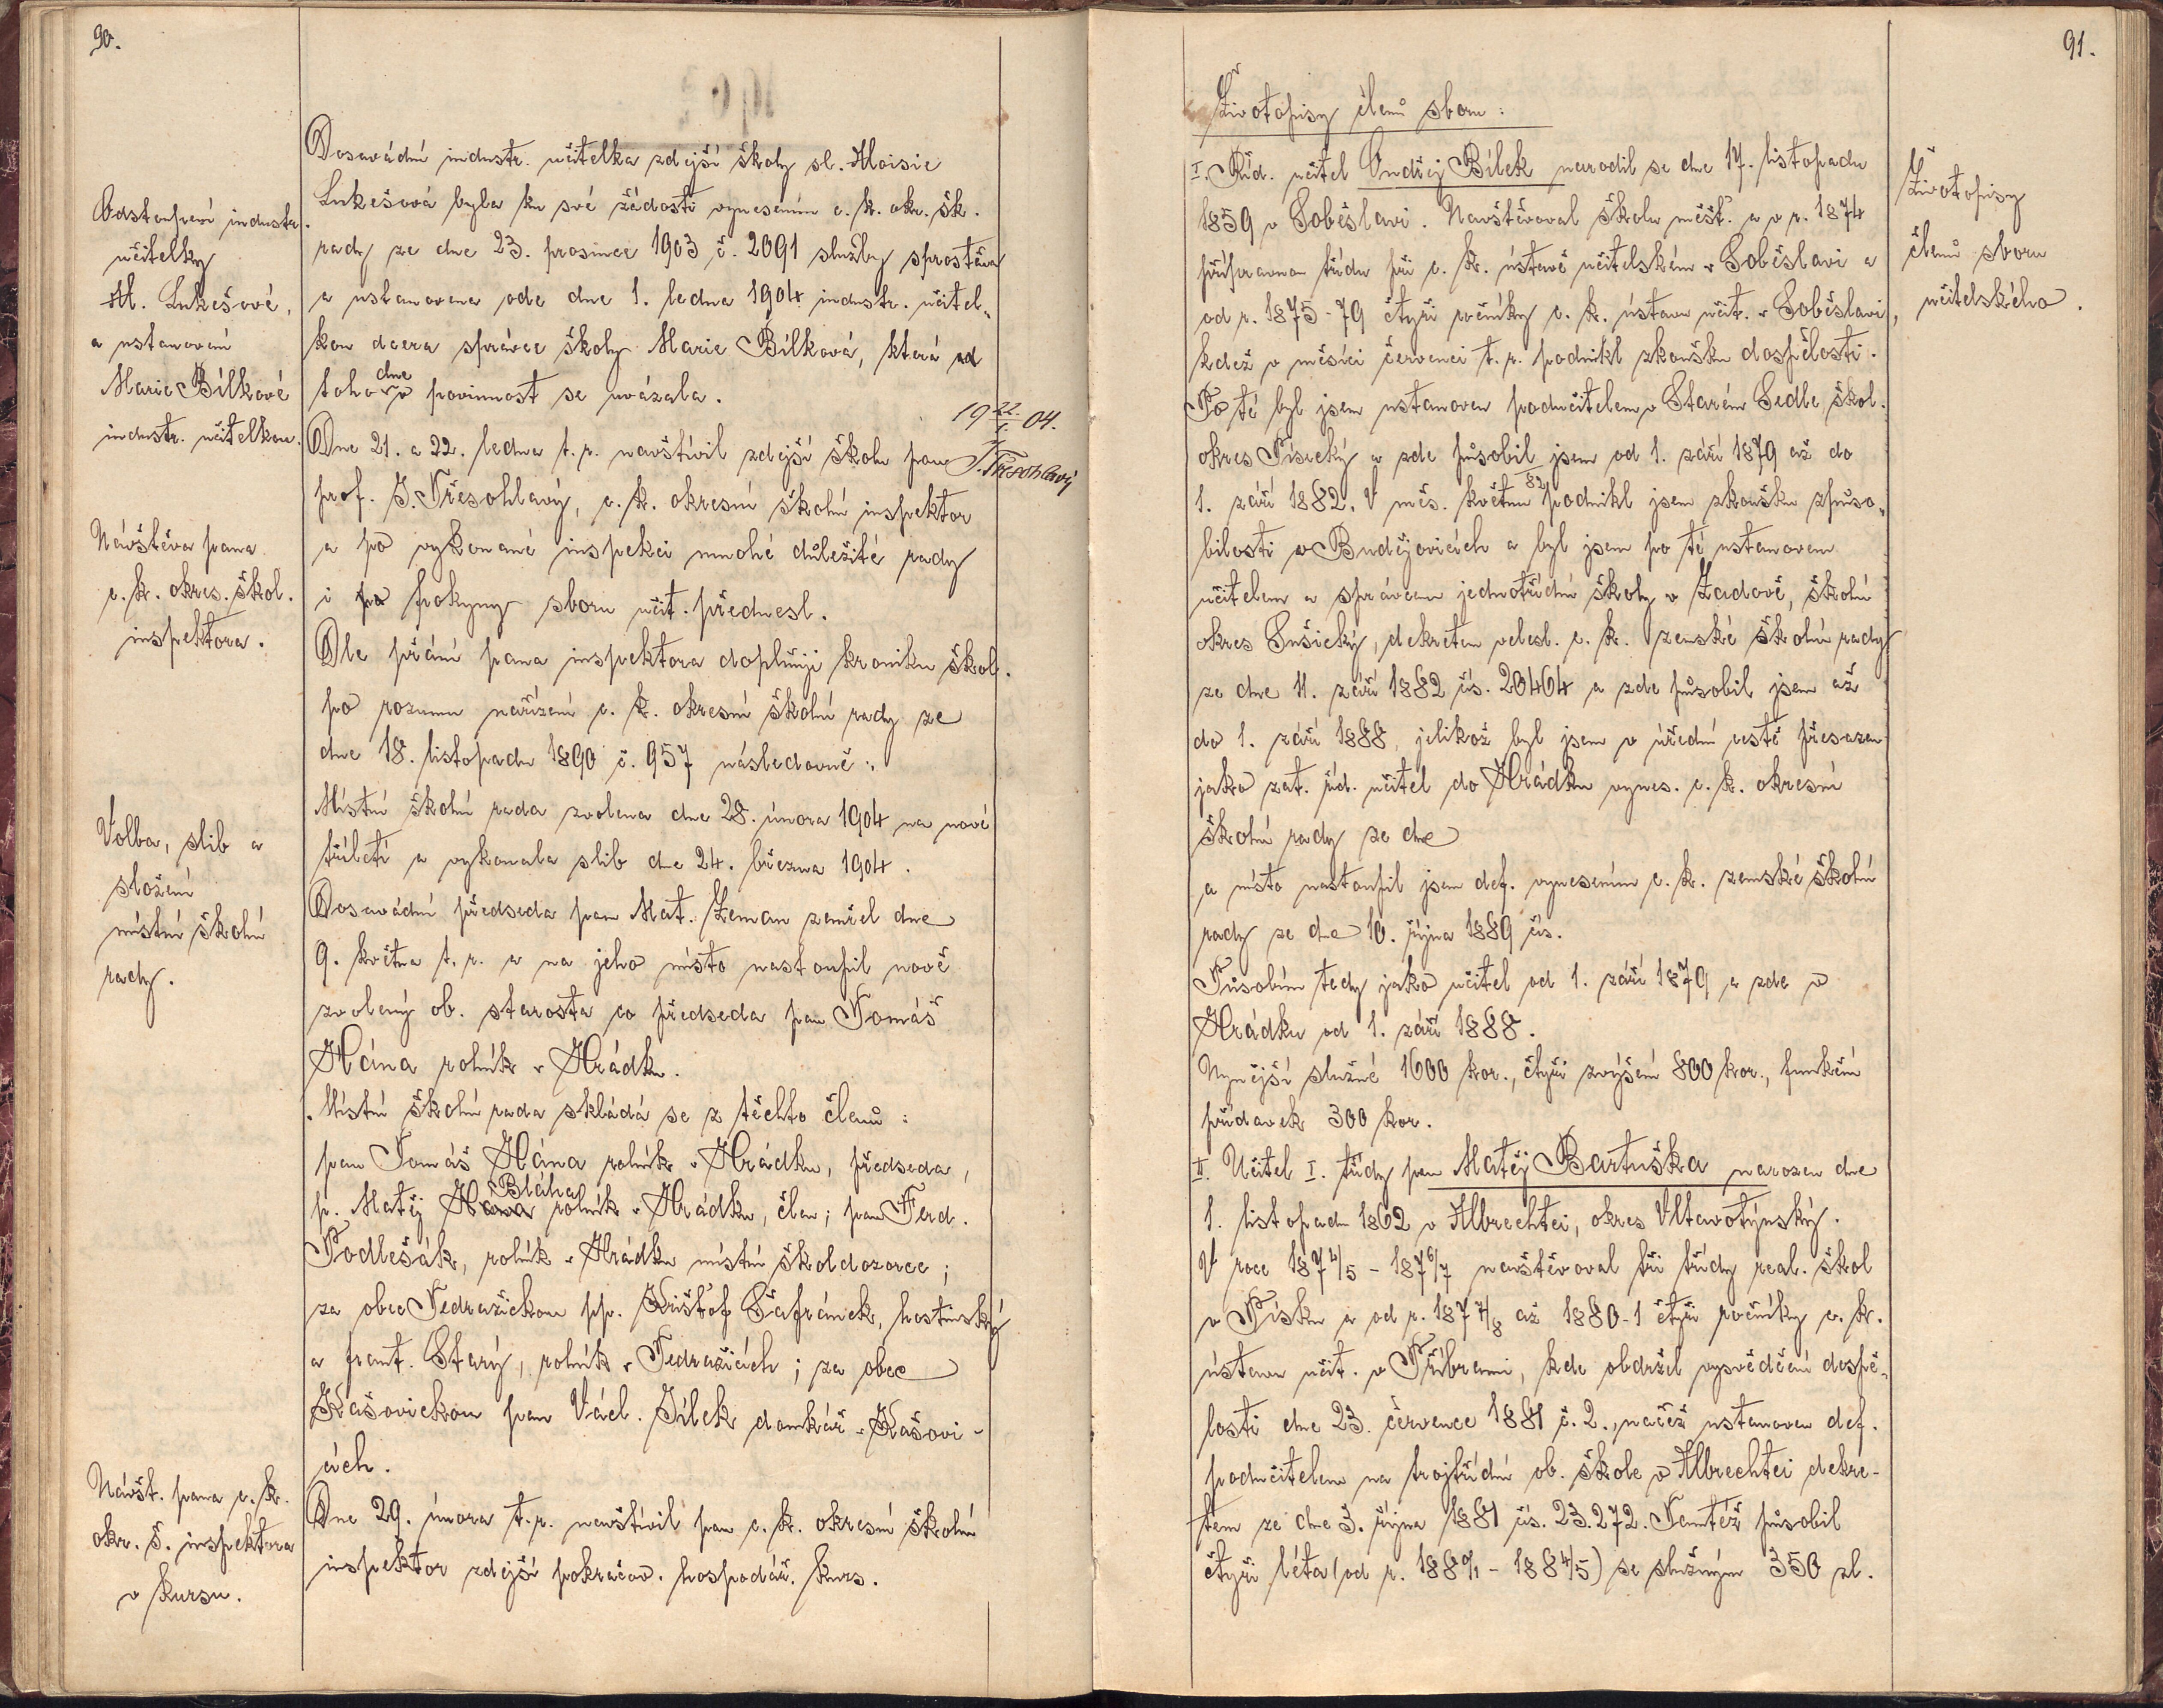 90.
Odstoupení industr.
učitelky
Al. Lukešové,
a ustanovení
Marie Bílkové
industr. učitelkou.
Dosavádní industr. učitelka zdejší školy sl. Aloisie
Lukešová byla ku své žádosti vynesením c. k. okr. šk.
rady ze dne 23. prosince 1903 č. 2091 služby sproštěna
a ustanovena ode dne 1. ledna 1904 industr. učitel„
kou dcera správce školy Marie Bílková, která od
toho dne v povinnost se uvázala.
19 22/1. 04.
J. Třesohlavý
Návštěva pana
c. k. okres. škol.
inspektora.
Dne 21. a 22. ledna t. r. navštívil zdejší školu pan
prof. J. Třesohlavý, c. k. okresní školní inspektor
a po vykonané inspekci mnohé důležité rady
i po pokyny sboru učit. přednesl.
Dle přání pana inspektora doplňuji kroniku škol.
po rozumu nařízení c. k. okresní školní rady ze
dne 18. listopadu 1890 č. 957 následovně:
Volba, slib a
složení
místní školní
rady.
Místní školní rada zvolena dne 28. února 1904 na nové
tříletí a vykonala slib dne 24. března 1904.
Dosavádní předseda pan Mat. Zeman zemřel dne
9. května t. r. a na jeho místo nastoupil nově
zvolený ob. starosta co předseda pan Tomáš
Hána rolník v Hrádku.
Místní školní rada skládá se z těchto členů:
pan Tomáš Hána rolník v Hrádku, předseda,
p. Matěj Hána Bláha rolník v Hrádku, člen; pan Ferd.
Podlešák, rolník v Hrádku místní škol dozorce;
za obec Nedražickou pp. Krištof Šafránek, hostinský
a frant. Starý, rolník v Nedražicích; za obec
Kašovickou pan Václ. Jílek domkář v Kašovi-
cích.
Návšt. pana c. k.
okr. š. inspektora
v kursu.
Dne 29. února t. r. navštívil pan c. k. okresní školní
inspektor zdejší pokračov. hospodář. kurs.
91.
Životopisy
členů sboru
učitelského.
Životopisy členů sboru:
I. Říd. učitel Ondřej Bílek narodil se dne 17. listopadu
1859 v Soběslavi. Navštěvoval školu měšť. a v r. 1874
přípravnou třídu při c. k. ústavě učitelském v Soběslavi a
od r. 1875-79 čtyři ročníky c. k. ústavu učit. v Soběslavi,
kdež v měsíci červenci t. r. podnikl zkoušku dospělosti.
Po té byl jsem ustanoven podučitelem v Starém Sedle, škol.
okres Písecký a zde působil jsem od 1. září 1879 až do
1. září 1882. V měs. květnu 82 podnikl jsem zkoušku způso„
bilosti v Budějovicích a byl jsem po té ustanovem
učitelem a správcem jednotřídní školy v Zadově, školní
okres Sušický, dekretem veleslL. c. k. zemské školní rady
ze dne 11. září 1882 čís. 20464 a zde působil jsem až
do 1. září 1888, jelikož byl jsem v úřední cestě přesazen
jako zat. říd. učitel do Hrádku vynes. c. k. okresní
školní rady ze dne
a místo nastoupil jsem def. vynesením c. k. zemské školní
rady ze dne 10. října 1889 čís.
Působím tedy jako učitel od 1. září 1879 a zde v
Hrádku od 1. září 1888.
Nynější služné 1600 kor., čtyři zvýšení 800 kor., funkční
přídavek 300 kor.
II. Učitel I. třídy pan Matěj Bartuška narozen dne
1. listopadu 1862 v Albrechtci, okres Vltavotýnský.
V roce 1874/5 - 1876/7 navštěvoval tři třídy real. škol
v Písku a od r. 1877/8 až 1880-1 čtyři ročníky c. k.
ústavu učit. v Příbrami, kde obdržel vysvědčení dospě„
losti dne 23. července 1881 č. 2., načež ustanoven def.
podučitelem na trojtřídní ob. škole v Albrechtci dekre-
tem ze dne 3. října 1881 čís. 23.272. Tamtéž působil
čtyři léta (od r. 1880/1 - 1884/5) se služným 350 zl.